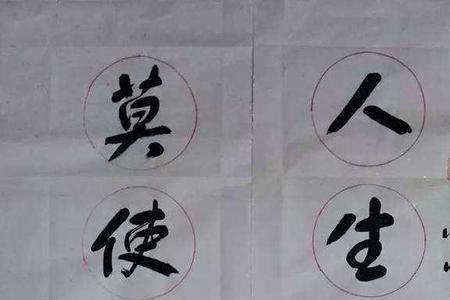 人生
莫使